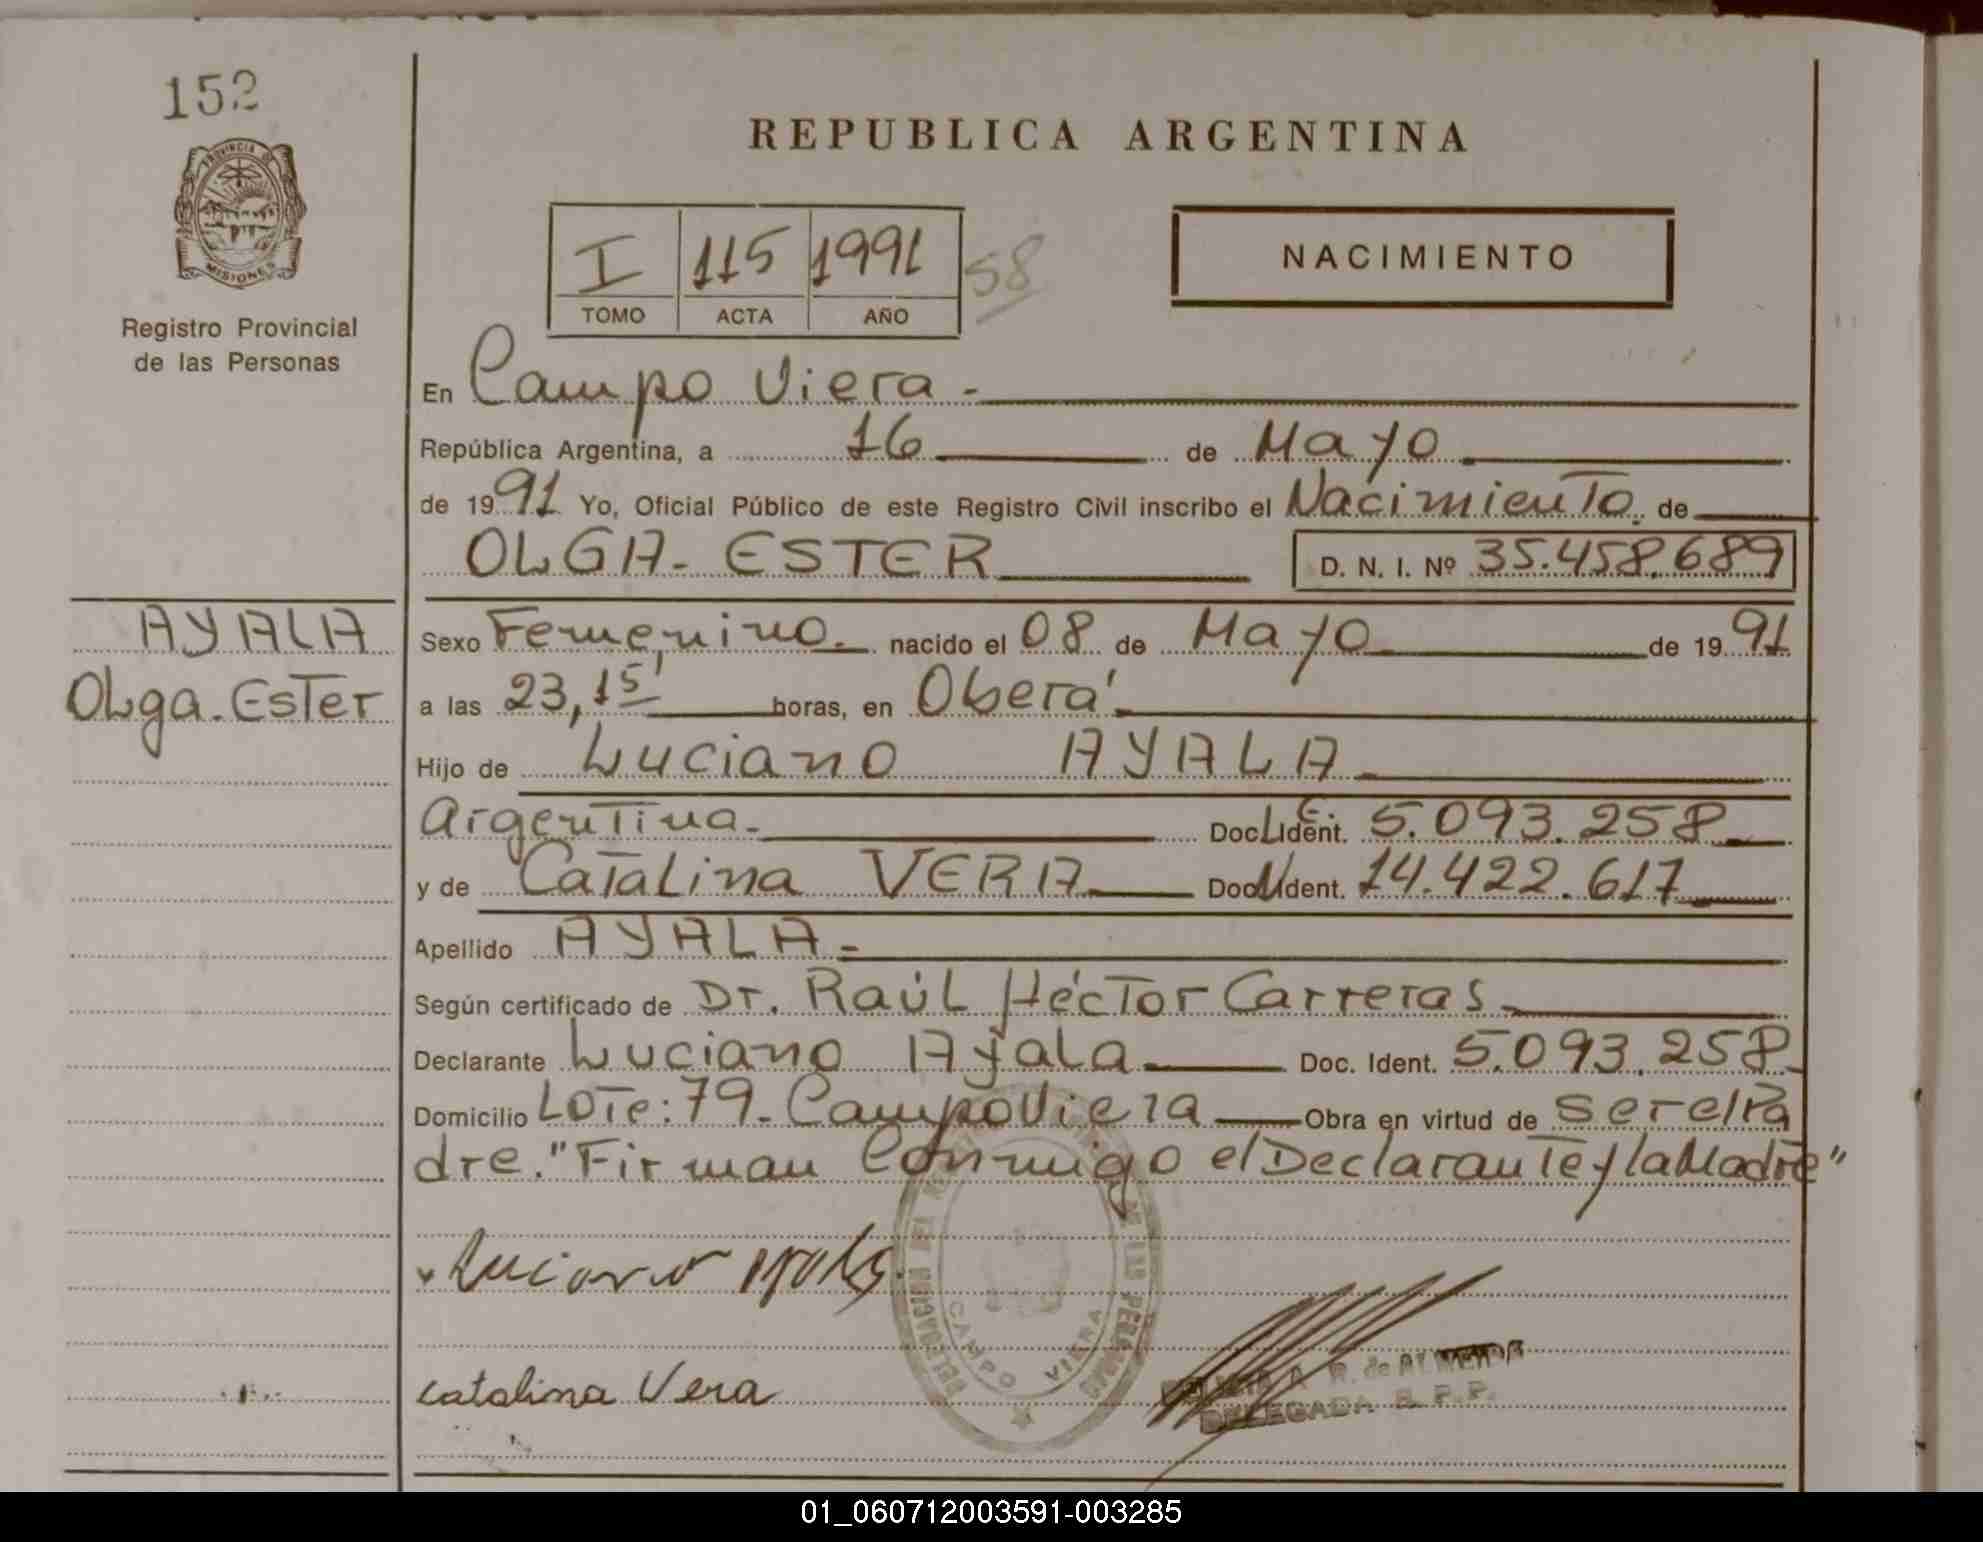 152
PROVINCIA DE
MISIONES
Registro Provincial
de las Personas
REPUBLICA ARGENTINA
I 115 1991 58
TOMO ACTA AÑO
NACIMIENTO
En Campo Viera.-
República Argentina, a 16 de Mayo
de 1991 Yo, Oficial Público de este Registro Civil inscribo el Nacimiento. de
OLGA- ESTER D. N. I. Nº 35.458.689
AYALA
Olga. Ester
Sexo Femenino.- nacido el 08 de Mayo de 1991
a las 23,15' horas, en Oberá
Hijo de Luciano AYALA
Argentina.- Doc. Ident. L.E. 5.093.258
y de Catalina VERA Doc. Ident. 14.422.617
Apellido AYALA.-
Según certificado de Dr. Raúl Héctor Carreras
Declarante Luciano Ayala Doc. Ident. 5.093.258
Domicilio Lote: 79- Campo Viera Obra en virtud de ser el Pa
dre. "Firman Conmigo el Declarante y la Madre"
Luciano Ayala
catalina Vera
DE LAS PERSONAS
CAMPO VIERA
A. R. de ALMEIDA
DELEGADA R. P. P.
01_060712003591-003285